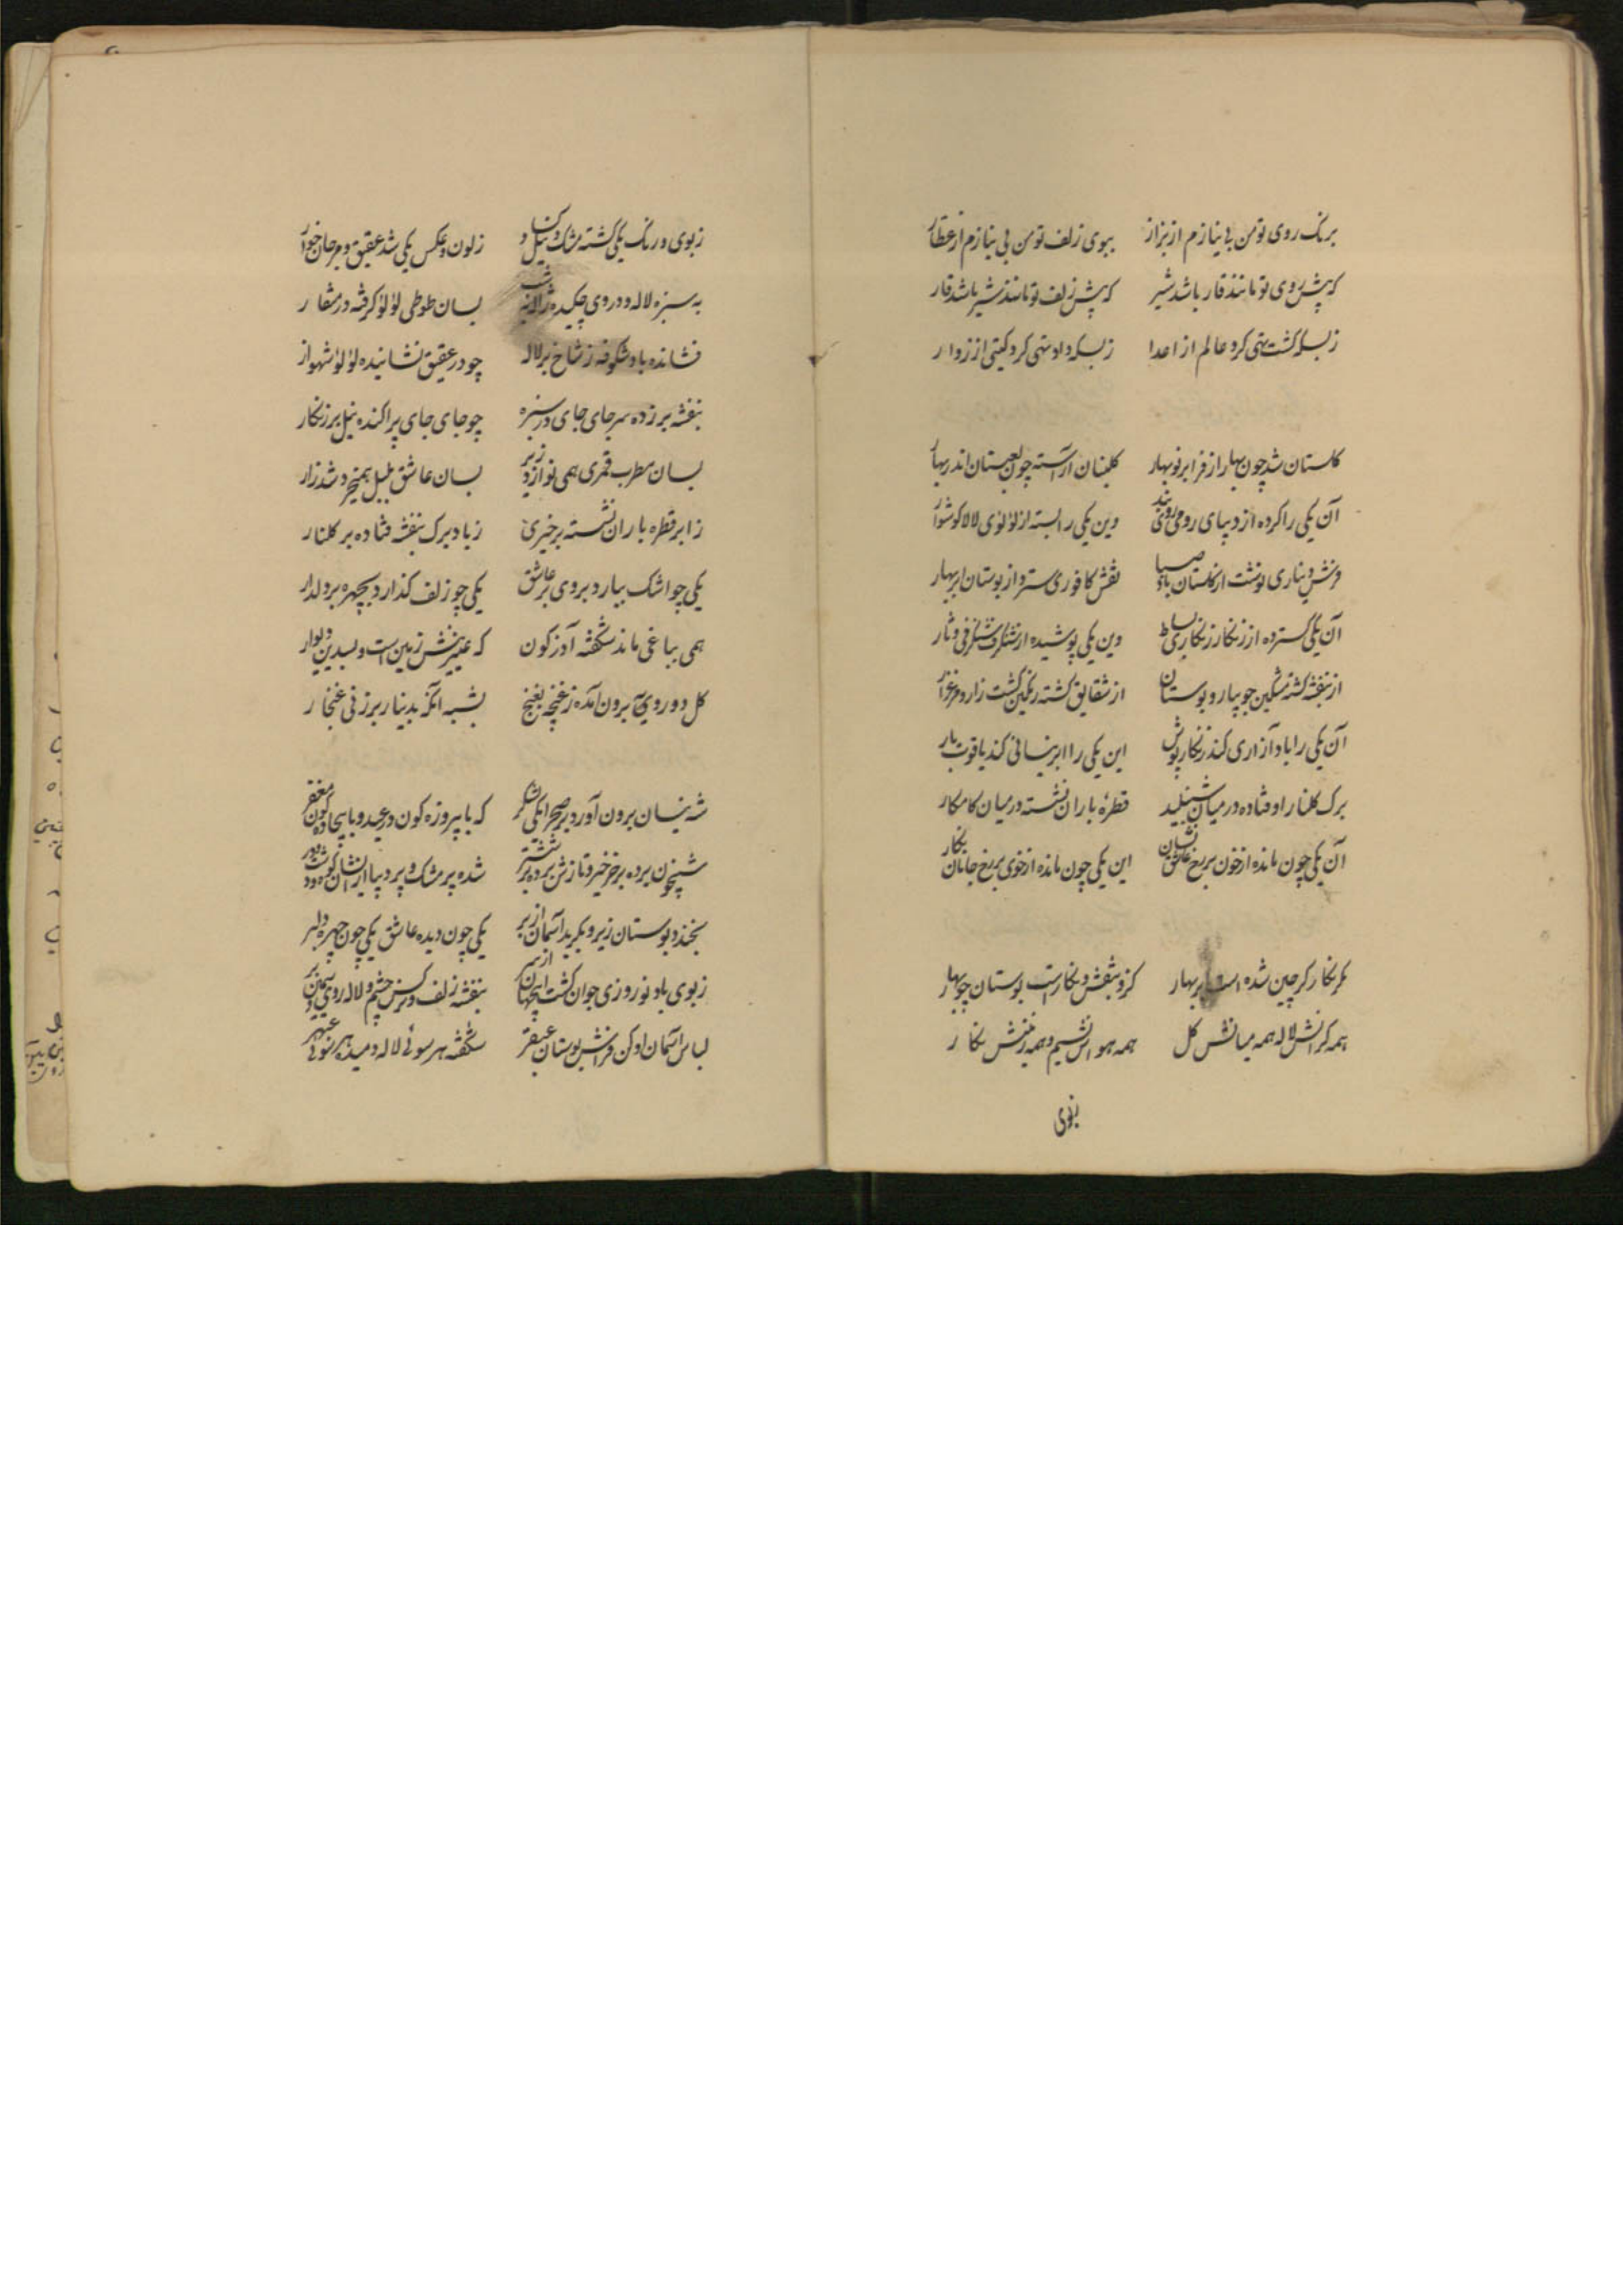 برنک روی تو من بی نیازم از بزاز ببوی زلف تو من بی نیازم از عطار
که پیش روی تو مانند قار باشد شیر که پیش زلف تو مانند شیر باشد قار
زبسکه کشت تهی کرد عالم از اعدا زبسکه داد تهی کرد کیتی از زوار
کلستان شد چون بهار از فر ابر نوبهار کلبنان آراسته چون لعبتان اندر بهار
آن یکی را کرده از دیبای رومی روی بند وین یکی را بسته از لؤلؤی لالا کوشوار
فرش دیناری نوشت از کلستان باد صبا نقش کافوری سترد از بوستان ابر بهار
آن یکی کسترده از زنکار زنکاری بساط وین یکی پوشیده از شنکرف شنکرفی دثار
از بنفشه کشته مشکین جویبار و بوستان از شقایق کشته رنکین کشت زار و مرغزار
آن یکی را باد آزاری کند زنکار پوش این یکی را ابر نیسانی کند یاقوت بار
برک کلنار اوفتاده در میان شنبلید قطرهٔ باران نشسته در میان کامکار
آن یکی چون مانده از خون بر رخ عاشق نشان این یکی چون مانده از خوی بر رخ جانان نکار
مکر نکار کر چین شده است ابر بهار کزو بنقش و نکار است بوستان چو بهار
همه کرانش لاله همه میانش کل همه هوایش نسیم و همه زمینش نکار
زبوی
زبوی و رنک یکی کشته مشک و نیل کساد زلون و عکس یکی شد عقیق و مرجان خوار
به سبزه لاله و در وی چکیده ژاله بشب بسان طوطی لؤلؤ کرفته در منقار
فشانده باد شکوفه ز شاخ بر لاله چو در عقیق نشانیده لؤلؤ شهوار
بنفشه بر زده سر جای جای در سبزه چو جای جای پراکنده نیل بر زنکار
بسان مطرب قمری همی نوازد زیر بسان عاشق بلبل همیخروشد زار
ز ابر قطره باران نشسته بر خیری ز باد برک بنفشه فتاده بر کلنار
یکی چو اشک ببارد بروی بر عاشق یکی چو زلف کذارد بچهره بر دلدار
همی بباغی ماند شکفته آذرکون که عنبرینش زمین است و بسدین دیوار
کل دو روی برون آمده ز غنچه بغنج بشبه آنکه بدینار برزنی غنجار
شه نیسان برون آورد بر صحرا یکی لشکر که با پیروزه کون درعید و با بیجاده کون مغفر
شبیخون برده بر خرخیز و تازش برده بر ششتر شده پر مشک و پر دیبا از ایشان کوه و دشت و در
بخندد بوستان زیر و بکرید آسمان از بر یکی چون دیده عاشق یکی چون چهره دلبر
زبوی باد نوروزی جوان کشت این جهان از سر بنفشه زلف و نرکس چشم و لاله روی و سمین بر
لباس آسمان ادکن فراش بوستان عبقر شکفته هر سوئی لاله دمیده هر سوئی عبهر